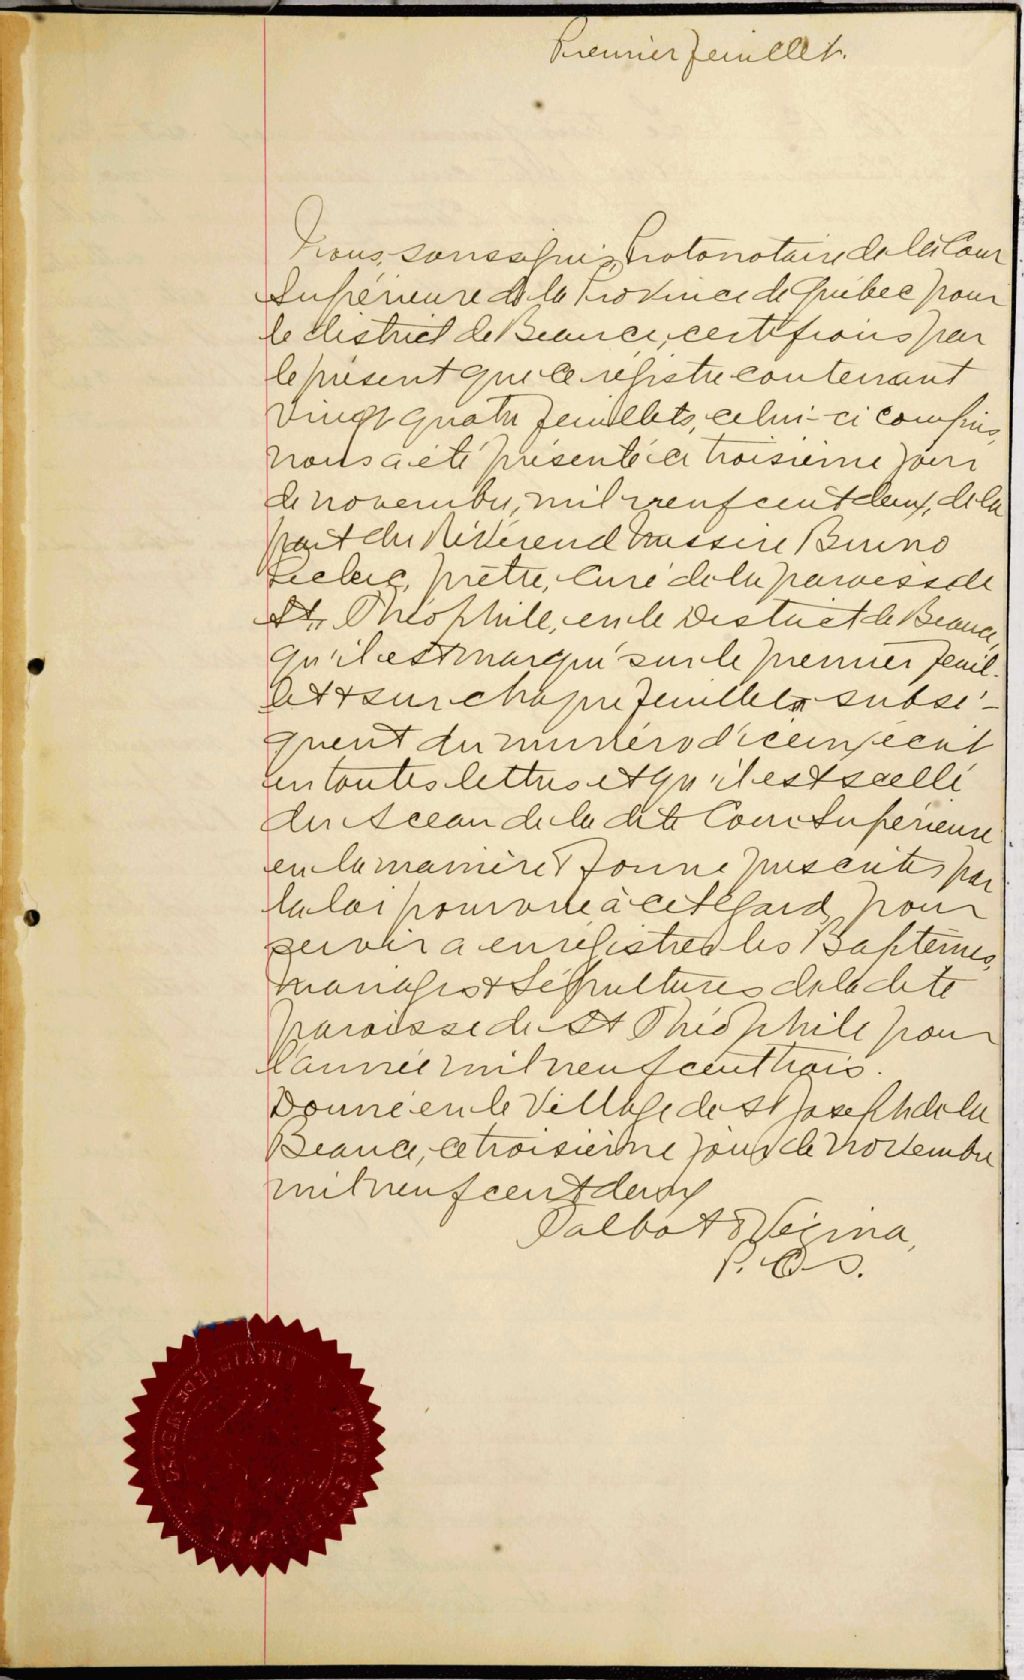 Premier feuillet.
Nous, soussigné, Protonotaire de la Cour
Supérieure de la Province de Québec pour
le district de Beauce, certifions par
le présent que ce régistre contenant
vingt quatre feuillets, celui-ci compris,
nous a été présenté ce troisième jour
de novembre, mil neuf cent deux, de la
part du Révérend Messire Bruno
Leclerc, prêtre, curé de la paroisse de
St. Théophile, en le District de Beauce,
qu'il est marqué sur le premier feuil-
let & sur chaque feuillet subsé-
quent du numéro d'icelui écrit
en toutes lettres et qu'il est scellé
du sceau de la dite Cour Supérieure
en la manière & forme prescrites par
la loi pourvue à cet égard, pour
servir a enrégistrer les Baptêmes,
mariages & Sépultures de la dite
paroisse de St Théophile pour
l'année mil neuf cent trois.
Donné en le Village de St Joseph de la
Beauce, ce troisième jour de novembre
mil neuf cent deux
Talbot & Vézina,
P. C. S.